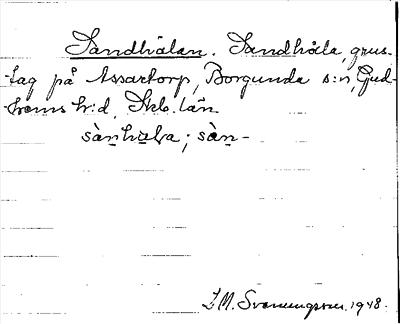 Sandhålan. Sandhåla, grus-
tag på Assartorp, Borgunda s:n, Gud-
hems h:d, Skb. län
sàn̲hɷla; sàn̲-
I.M. Svanungsson, 1948.